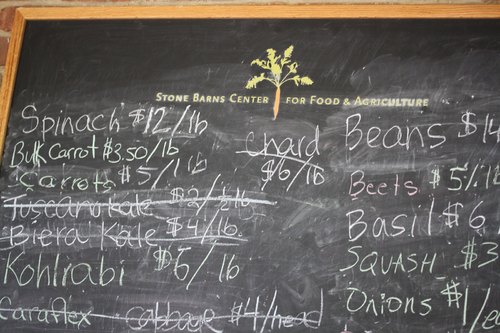 STONE BARNS CENTER FOR FOOD & AGRICULTURE
Spinach $12/lb
Bulk Carrot $3.50/lb
Carrots $5/lb
Tuscano Kale $2/lb
Biera Kale $4/lb
Kohlrabi $6/lb
Caraflex cabbage $4/head
Chard
$6/lb
Beans $14
Beets $5/1
Basil $6/
SQUASH $3
Onions $1/